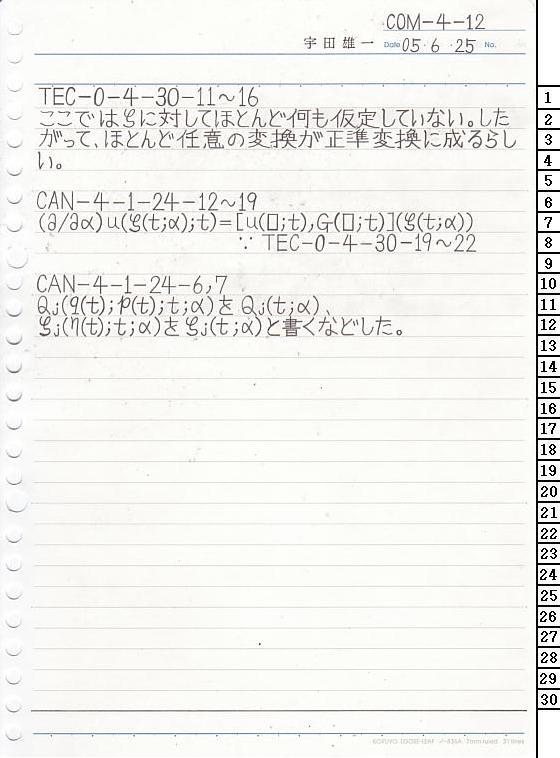 COM-4-12
宇田雄一 Date 05・6・25 No.
TEC-0-4-30-11~16
ここではξに対してほとんど何も仮定していない。した
がって、ほとんど任意の変換が正準変換に成るらし
い。
CAN-4-1-24-12~19
(∂/∂α)u(ξ(t;α);t)=[u(□;t),G(□;t)](ξ(t;α))
∵ TEC-0-4-30-19~22
CAN-4-1-24-6,7
Qj(q(t);p(t);t;α)を Qj(t;α)、
ξj(η(t);t;α)を ξj(t;α)と書くなどした。
1
2
3
4
5
6
7
8
9
10
11
12
13
14
15
16
17
18
19
20
21
22
23
24
25
26
27
28
29
30
KOKUYO LOOSE-LEAF ノ-836A 7mm ruled 31 lines